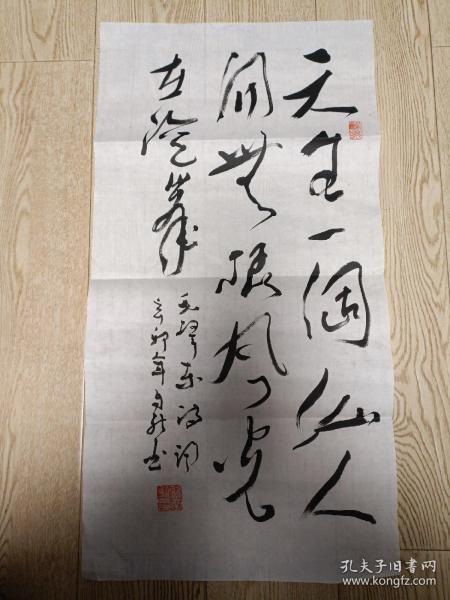 天生一個仙人
洞無限風光
在險峯
毛澤东诗词
卯年书
孔夫子旧书网
www.kongfz.com